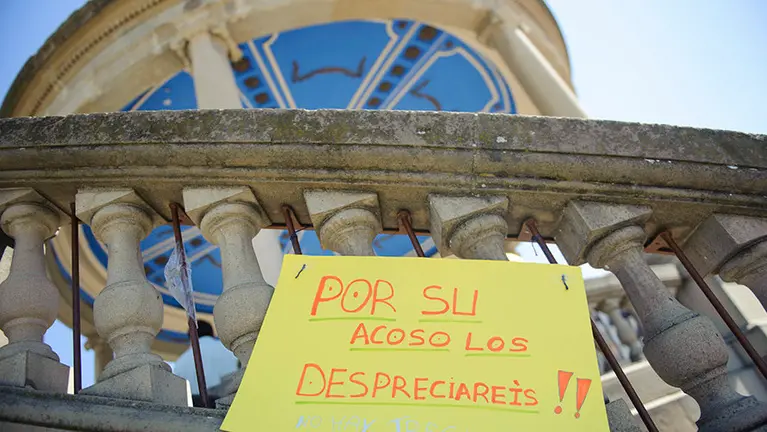 POR SU
ACOSO LOS
DESPRECIAREÌS !!